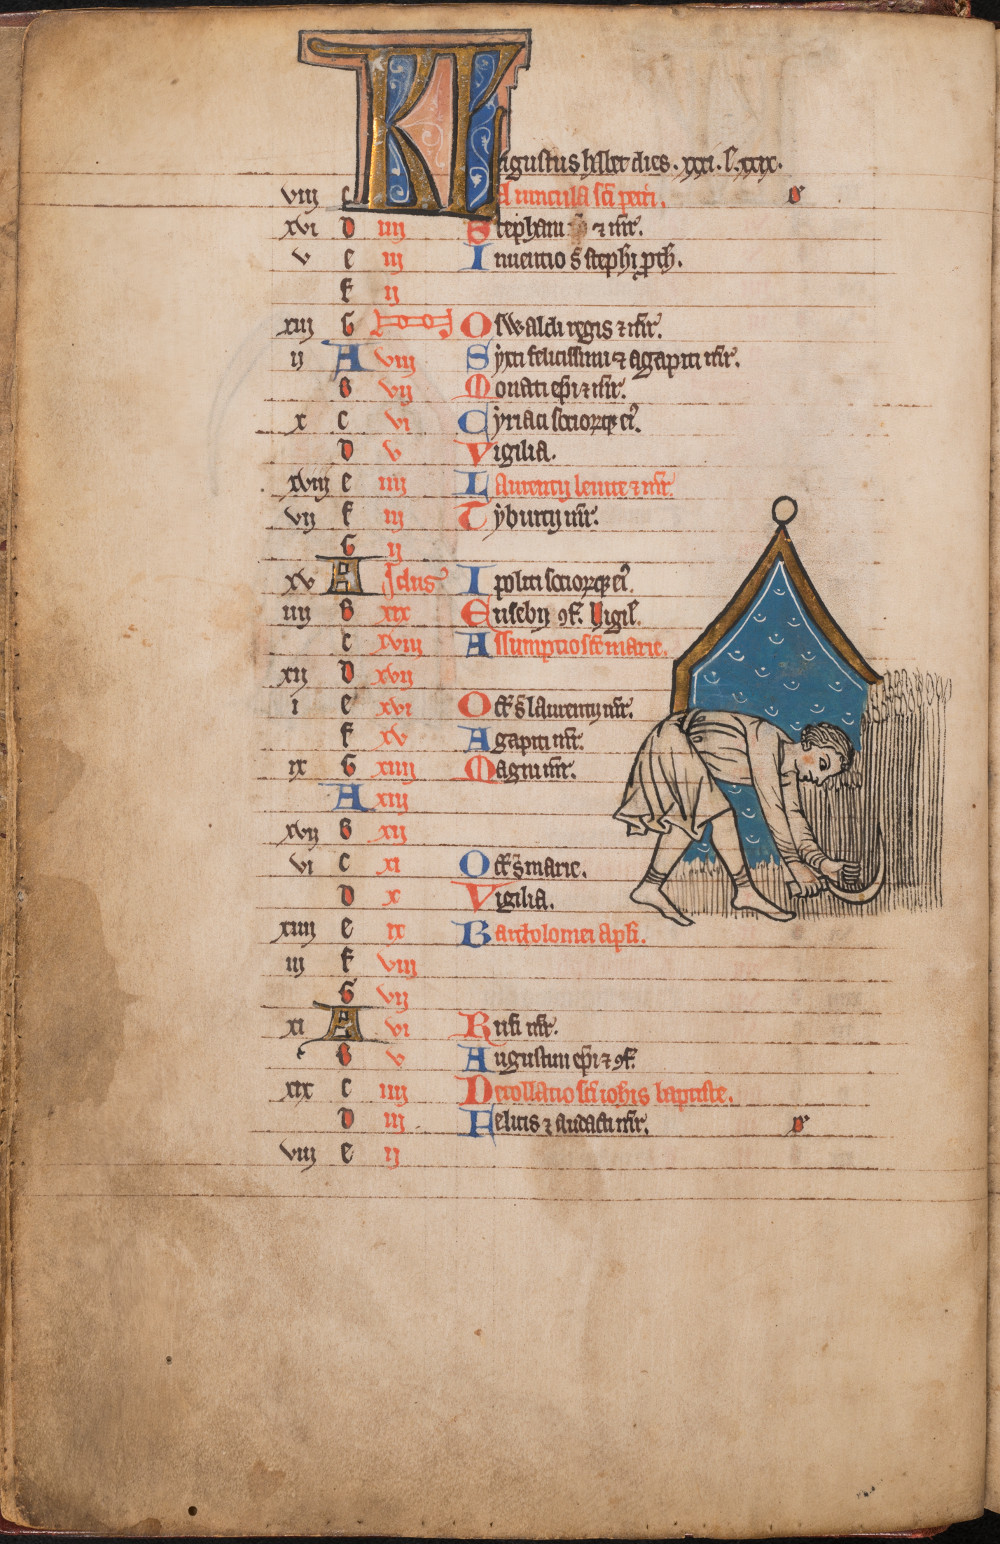 KL Augustus habet dies. xxxi. l. xxix.
viij c Ad uincula sci petri. D
xvi D iiij Stephani et mr.
v e iij Inuentio s stephi
f ij
xiij G Oswaldi regis et mr.
ij A viij Syxti felicissimi et agapiti mr.
b vij Donati epi et mr.
x c vi Cyriaci socioruque ei.
D v Vigilia.
xviij e iiij Laurencij leuite et mr.
vij f iij Tyburcij mr.
G ij
xv A Idus Ipoliti socioruque ei.
iiij b xix Eusebij 9f. Vigil.
c xviij Assumptio sce marie.
xij D xvij
i e xvi Oct s laurencij mr.
f xv Agapiti mr.
ix G xiiij Magni mr.
A xiij
xvij b xij
vi c xi Oct s marie.
D x Vigilia.
xiiij e ix Bartholomei apli.
iij f viij
G vij
xi A vi Rufi mr.
b v Augustini epi et 9f.
xix c iiij Decollatio sci iohis baptiste.
D iij Felicis et audacti mr. D
viij e ij